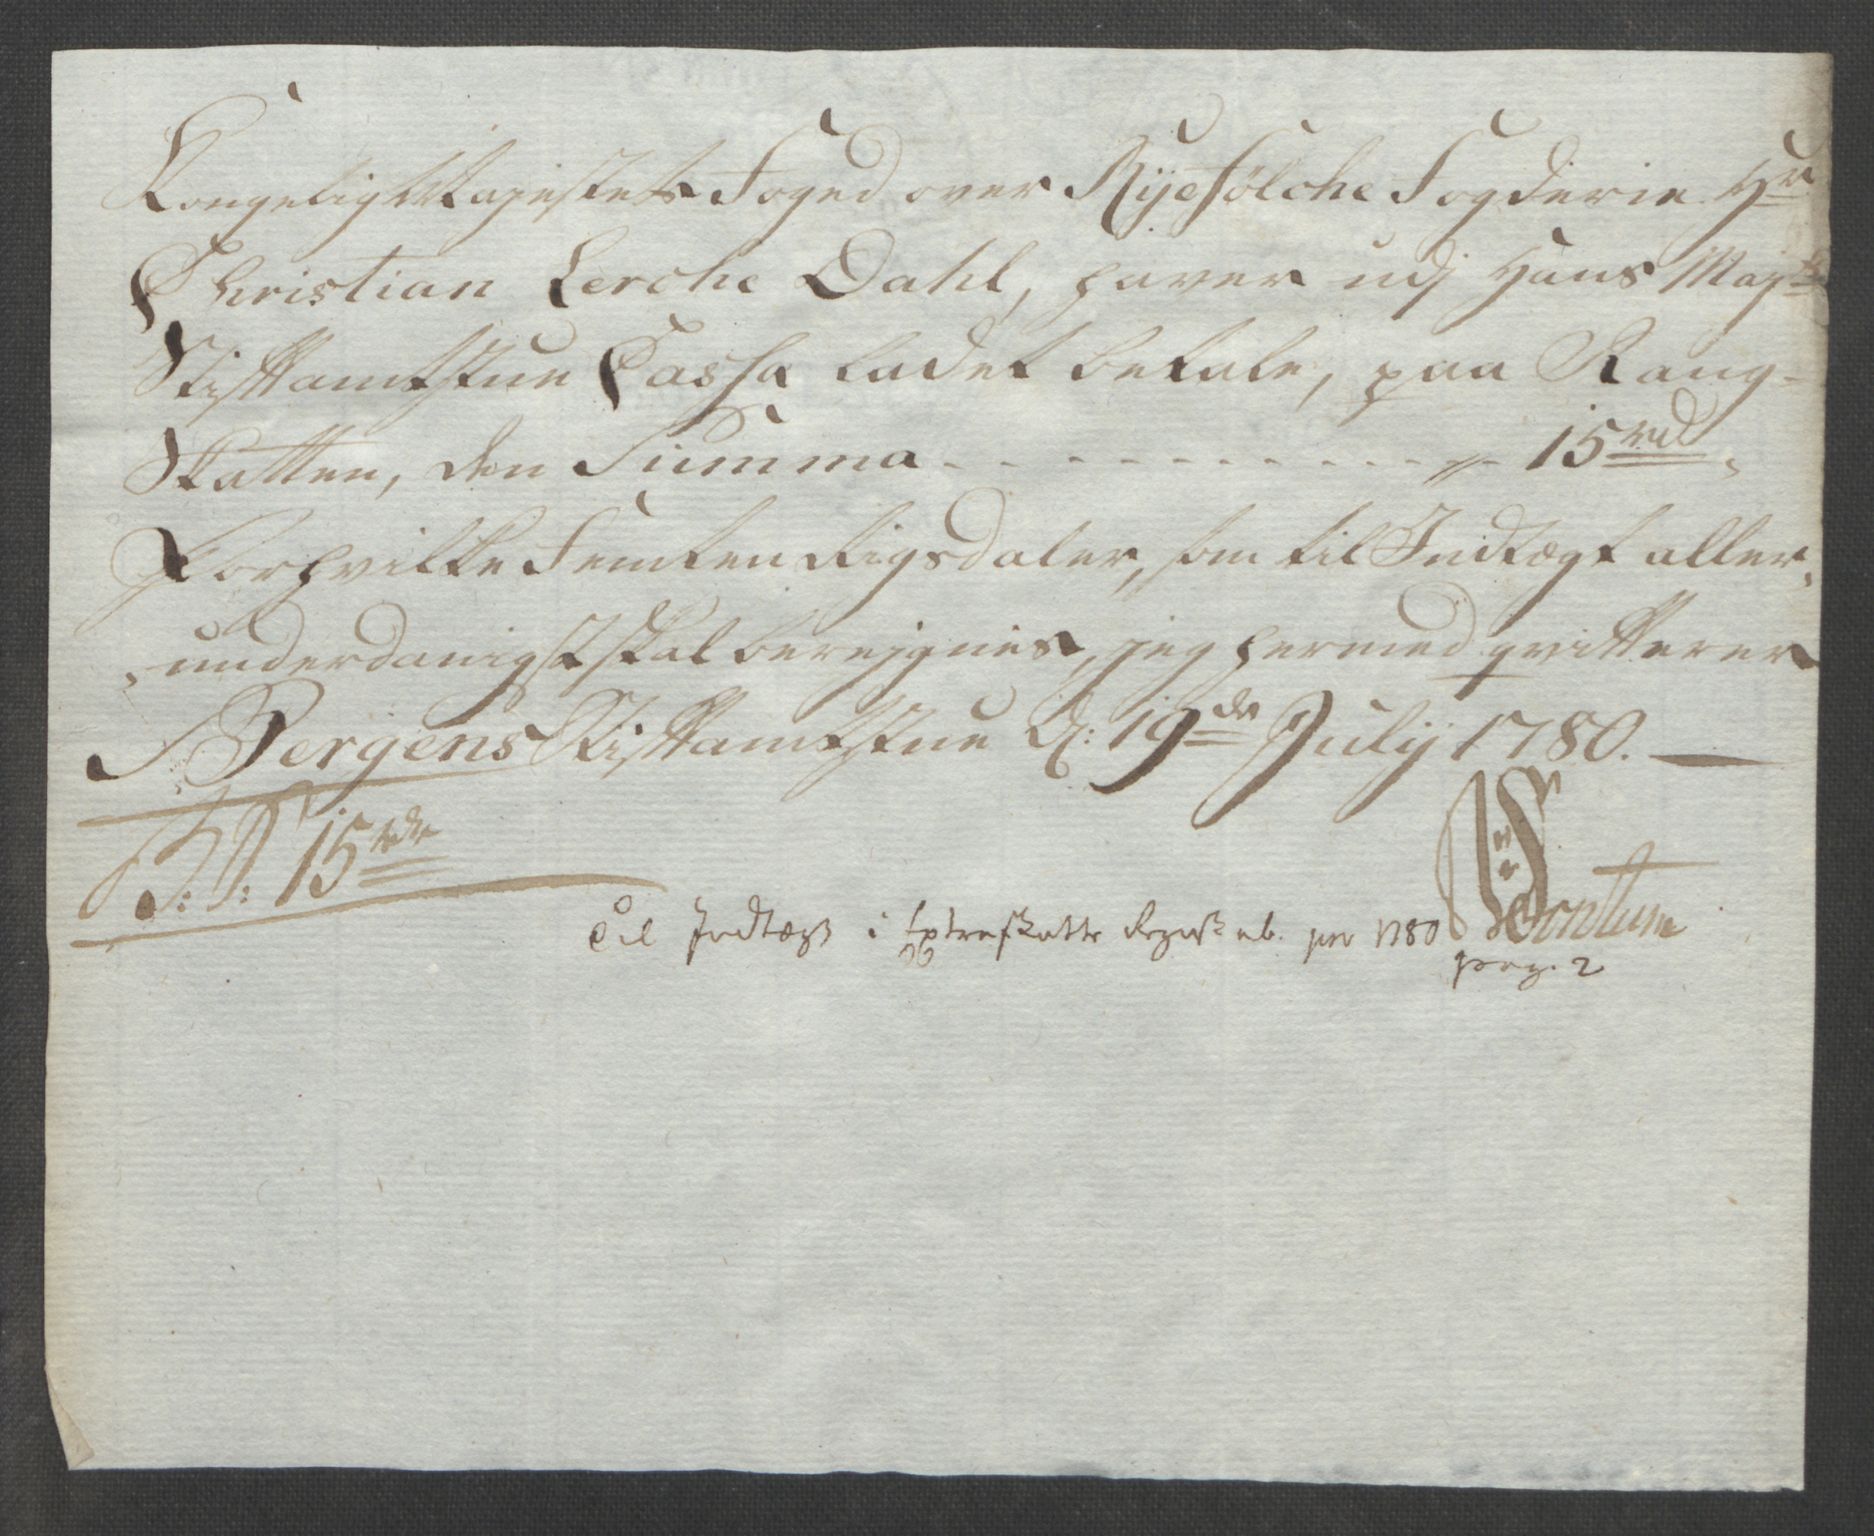 Kongelig Majestets Foged over Ryefølche Fogderie Hr
Christian Lerche Dahl, haver udj Hans Majts
Stiftamtstue Cassa ladet betale, paa Rang-
Skatten, den Summa - - - - - - - - - - - - 15 rd,
For hvilke Femten Rigsdaler, som til Indtægt aller,
,underdanigst skal beregnes, jeg hermed qvitterer
Bergens Stiftamtstue d: 19de Julij 1780.
15 rdr
Fontum
Til Indtægt i Extraskatte Regnskab. pro 1780
pag. 2